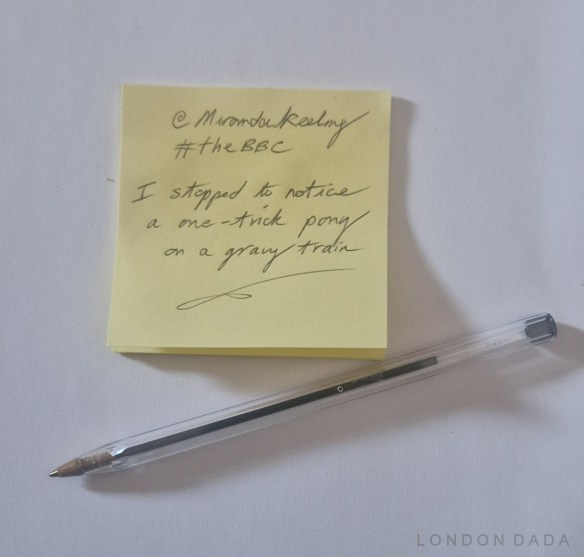 @MirandaKeeling
#theBBC
I stopped to notice
a one-trick pony
on a gravy train
LONDON DADA